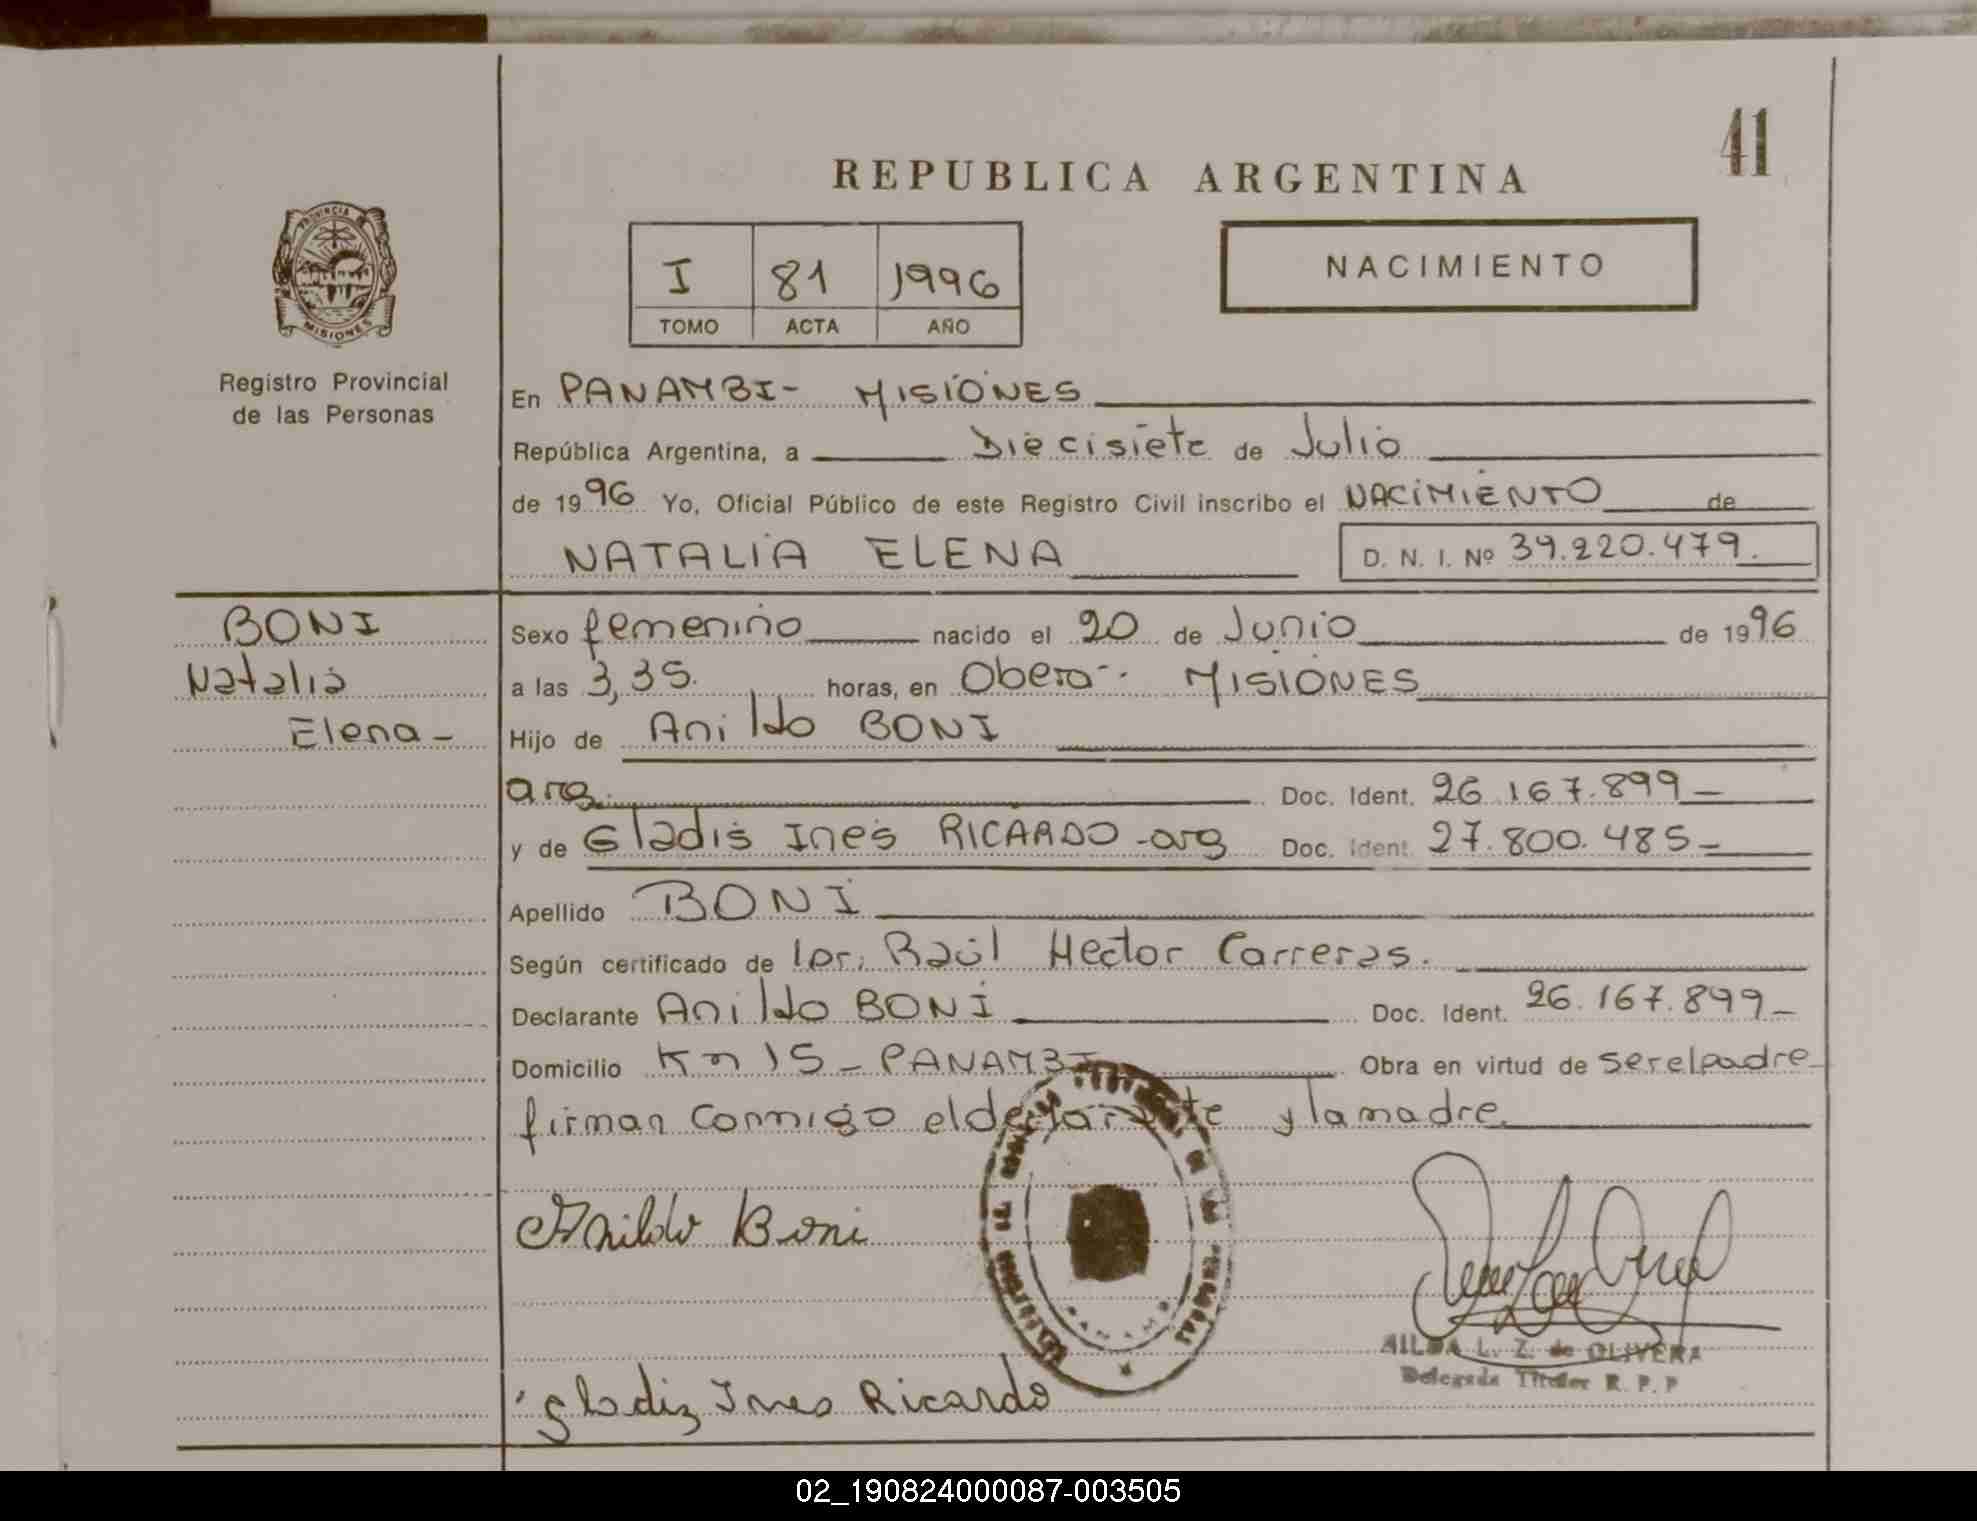 41
REPUBLICA ARGENTINA
I 81 1996
TOMO ACTA AÑO
NACIMIENTO
PROVINCIA DE
MISIONES
Registro Provincial
de las Personas
En PANAMBI- MISIONES
República Argentina, a Diecisiete de Julio
de 1996 Yo, Oficial Público de este Registro Civil inscribo el NACIMIENTO de
NATALIA ELENA D. N. I. Nº 39.220.479.
BONI
Natalia
Elena-
Sexo femenino nacido el 20 de Junio de 1996
a las 3,35. horas, en Obera-. MISIONES
Hijo de Anildo BONI
arg. Doc. Ident. 26.167.899-
y de Gladis Ines RICARDO-arg Doc. Ident. 27.800.485-
Apellido BONI
Según certificado de Dr. Raúl Hector Carreras.
Declarante Anildo BONI Doc. Ident. 26.167.899-
Domicilio Km 15-PANAMBI Obra en virtud de ser el padre
firman conmigo el declarante y la madre
Anildo Boni
PANAMBI
AILDA L. Z. de OLIVERA
Delegada Titular R. P. P
Gladiz Ines Ricardo
02_190824000087-003505